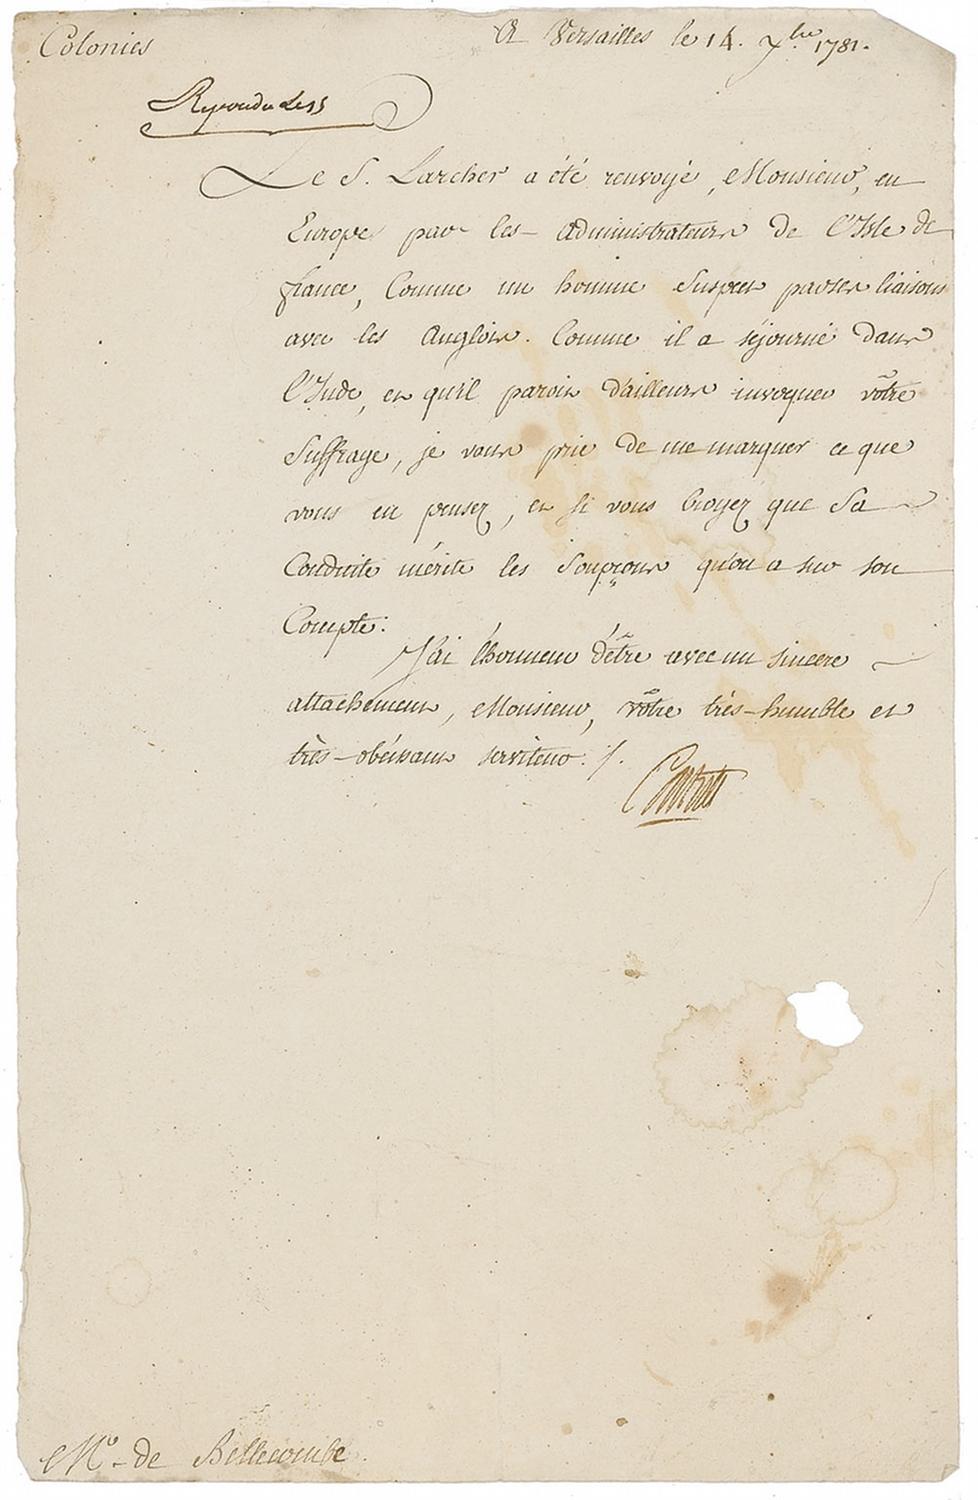 Colonies
A Versailles le 14. 7bre 1781.
Repondu le 15
Le S. Larcher a été renvoyé, Monsieur, en
Europe par les administrateurs de l'Isle de
france, Comme un homme Suspect par ses liaisons
avec les Anglois. Comme il a séjourné dans
l'Inde, et qu'il paroit d'ailleurs invoquer vôtre
Suffrage, je vous prie de me marquer ce que
vous en pensez, et si vous croyez que Sa
Conduite mérite les Soupçons qu'on a sur son
Compte.
J'ai l'honneur d'être avec un sincere
attachement, Monsieur, vôtre très-humble et
très-obéissant serviteur ./.
Castries
Mr. de Bellecombe